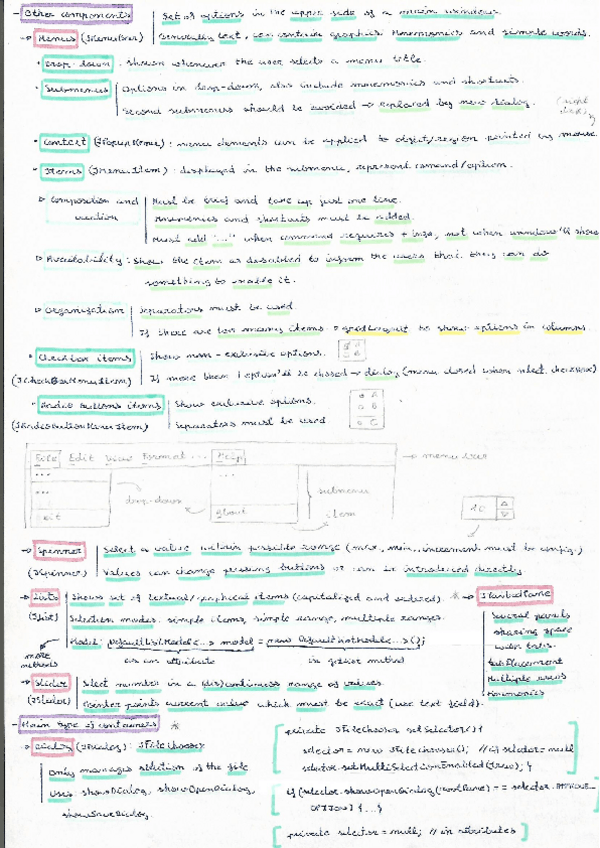 - Other components | Set of options in the upper side of a main window.
→ Menus (JMenuBar) | Generally text, can contain graphics. Mnemonics and simple words.
· Drop-down : shown whenever the user selects a menu title.
· Submenus | Options in drop-down, also include mnemonics and shortcuts.
Second submenus should be avoided → replaced by new dialog. (right
· Context (JPopupMenu) : menu elements can be applied to object/region pointed by mouse
· Items (JMenuItem) : displayed in the submenu, represent comand/option.
▹ Composition and creation | Must be brief and take up just one line.
Mnemonics and shortcuts must be added.
Must add "..." when command requires + info, not when window'll show
▹ Availability : Show the item as disabled to inform the users that they can do
something to enable it.
▹ Organization | Separators must be used
If there are too many items → gridLayout to show options in columns
· Checkbox items | Show non-exclusive options.
(JCheckBoxMenuItem) | If more than 1 option'll be chosed → dialog (menu closed when select. checkbox)
· Radio buttons items | Show exclusive options.
(JRadioButtonMenuItem) | Separators must be used
A
B
C
File Edit View Format ... Help → menu bar
...
...
Exit
drop-down
About
submenu
item
10
→ Spinner | Select a value within possible range (max., min., increment must be config.)
(JSpinner) | Values can change pressing buttons or can be introduced directly
→ Lists | Shows set of textual/graphical items (capitalized and ordered).
(JList) | Selection modes: simple items, simple range, multiple ranges.
Model: DefaultListModel<...> model = new DefaultListModel<...>();
more methods
as an attribute
in getter method
* → JTabbedPane
Several panels
sharing space
with tabs.
tabPlacement
Multiple rows
Mnemonics
→ Slider | Select number in a (dis)continuous range of values.
(JSlider) | current value which must be exact (use text field).
- Main type of containers *
→ Dialog (JDialog) : JFileChooser
Only manages selection of the file
Uses showDialog, showOpenDialog,
showSaveDialog.
private JFileChooser getSelector() {
selector = new JFileChooser(); // if selector = null
selector.setMultiSelectionEnabled(true); }
if (selector.showOpenDialog( == selector.APPROVE_
OPTION) {...}
private selector = null; // in attributes